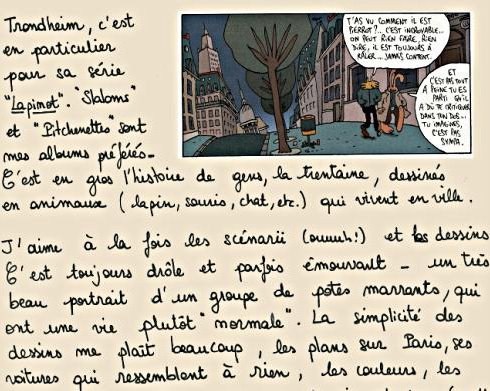 Trondheim, c'est
en particulier
pour sa série
"Lapinot". "Slaloms"
et "Pitchenettes" sont
mes albums préférés_
T'AS VU COMMENT IL EST
PIERROT?... C'EST INCROYABLE...
ON PEUT RIEN FAIRE, RIEN
DIRE, IL EST TOUJOURS À
RÂLER... JAMAIS CONTENT.
ET
C'EST PAS TOUT
À PEINE TU ES
PARTI QU'IL
A DÛ TE CRITIQUER
DANS TON DOS...
TU IMAGINES,
C'EST PAS
SYMPA.
C'est en gros l'histoire de gens, la trentaine, dessinés
en animaux (lapin, souris, chat, etc.) qui vivent en ville.
J'aime à la fois les scénarii (ouuuh!) et les dessins
C'est toujours drôle et parfois émouvant _ un très
beau portrait d'un groupe de potes marrants, qui
ont une vie plutôt "normale". La simplicité des
dessins me plaît beaucoup, les plans sur Paris, ses
voitures qui ressemblent à rien, les couleurs, les